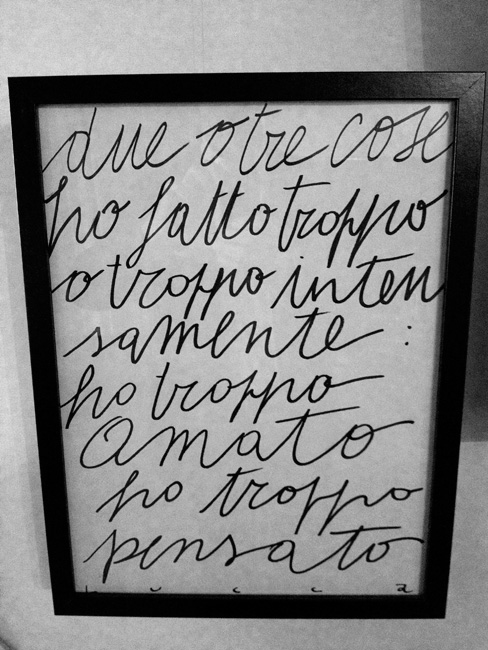 due o tre cose
ho fatto troppo
o troppo inten
samente :
ho troppo
amato
ho troppo
pensato